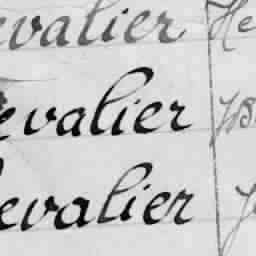 evalier He
evalier
evalier